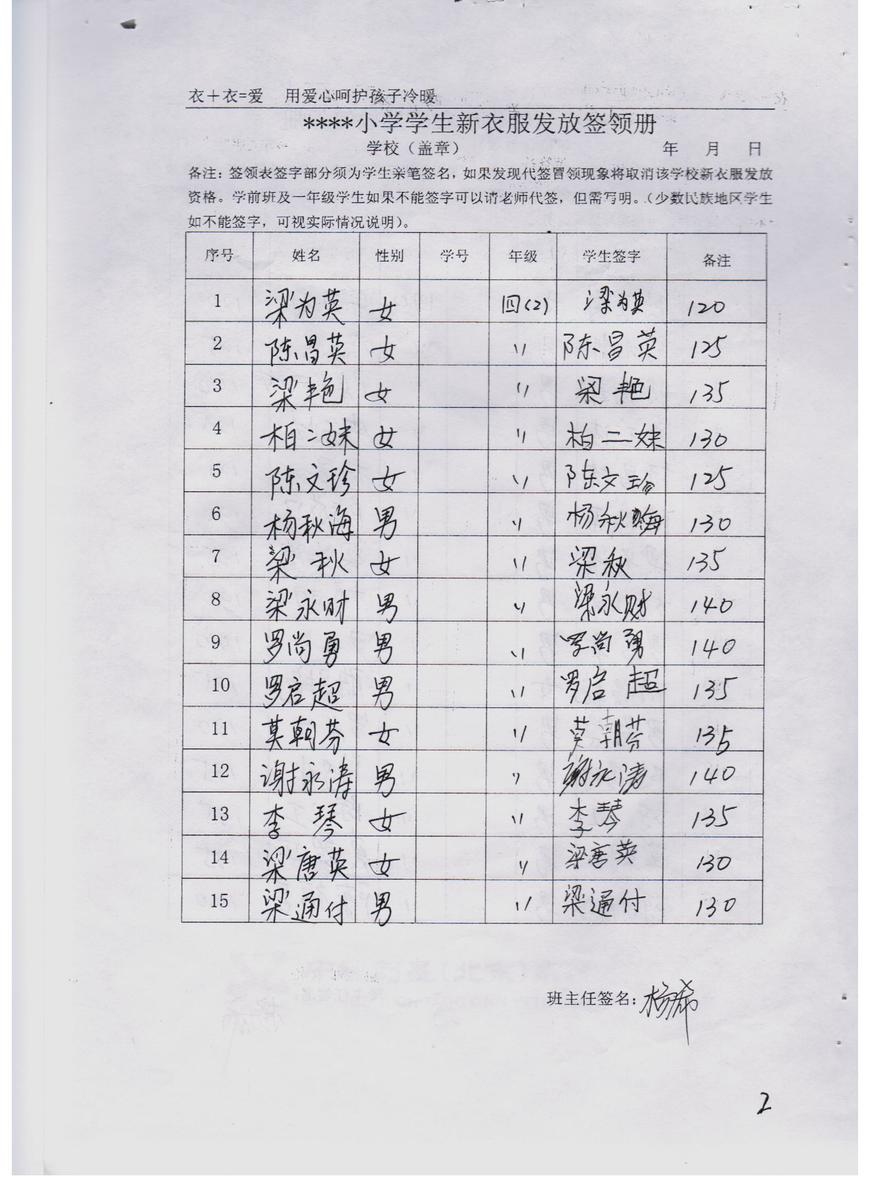 衣＋衣=爱 用爱心呵护孩子冷暖
****小学学生新衣服发放签领册
学校（盖章） 年 月 日
备注：签领表签字部分须为学生亲笔签名，如果发现代签冒领现象将取消该学校新衣服发放
资格。学前班及一年级学生如果不能签字可以请老师代签，但需写明。（少数民族地区学生
如不能签字，可视实际情况说明）。
序号 姓名 性别 学号 年级 学生签字 备注
1 梁为英 女 四(2) 梁为英 120
2 陈昌英 女 〃 陈昌英 125
3 梁艳 女 〃 梁艳 135
4 柏二妹 女 〃 柏二妹 130
5 陈文珍 女 〃 陈文珍 125
6 杨秋海 男 〃 杨秋海 130
7 梁秋 女 〃 梁秋 135
8 梁永财 男 〃 梁永财 140
9 罗尚勇 男 〃 罗尚勇 140
10 罗启超 男 〃 罗启超 135
11 莫朝芬 女 〃 莫朝芬 135
12 谢永涛 男 〃 谢永涛 140
13 李琴 女 〃 李琴 135
14 梁唐英 女 〃 梁唐英 130
15 梁通付 男 〃 梁通付 130
班主任签名：杨希
2